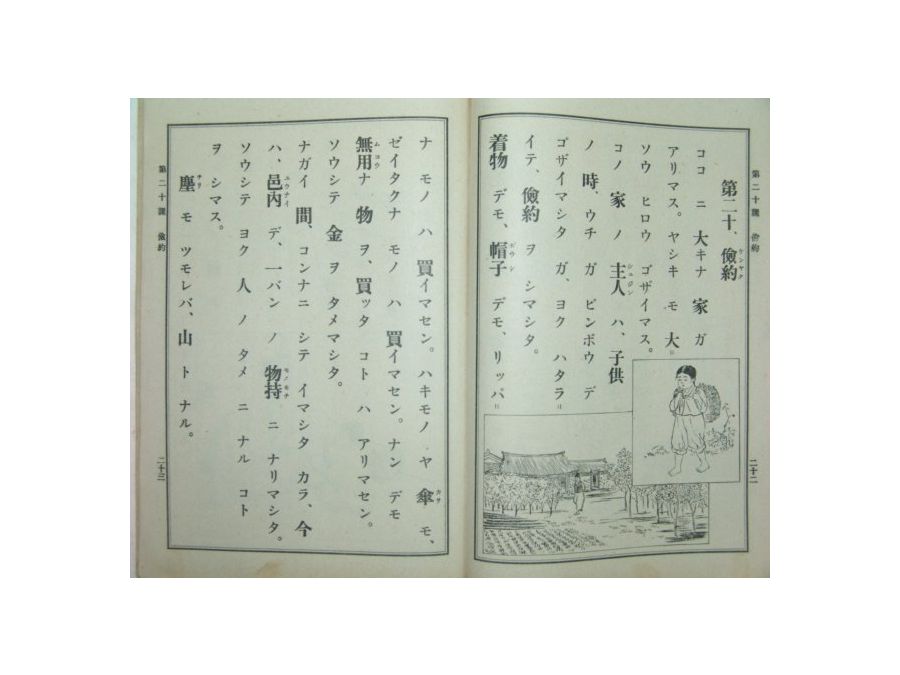 第二十課 儉約
二十二
第二十、儉約
ケンヤク
ココ ニ 大キナ 家 ガ
アリマス。ヤシキ モ 大=
ソウ ヒロウ ゴザイマス。
コノ 家 ノ 主人 ハ、子供
シュジン
ノ 時、ウチ ガ ビンボウ デ
ゴザイマシタ ガ、ヨク ハタラ=
イテ、儉約 ヲ シマシタ。
着物 デモ、帽子 デモ、リッパ=
ボウシ
ナ モノ ハ 買イマセン。ハキモノ ヤ 傘 モ、
カサ
ゼイタクナ モノ ハ 買イマセン。ナン デモ
無用ナ 物 ヲ、買ッタ コト ハ アリマセン。
ムヨウ
ソウシテ 金 ヲ タメマシタ。
ナガイ 間、コンナニ シテ イマシタ カラ、今
ハ、邑内 デ、一バン ノ 物持 ニ ナリマシタ。
ユウナイ
モノモチ
ソウシテ ヨク 人 ノ タメ ニ ナル コト
ヲ シマス。
塵 モ ツモレバ、山 ト ナル。
チリ
第二十課 儉約
二十三